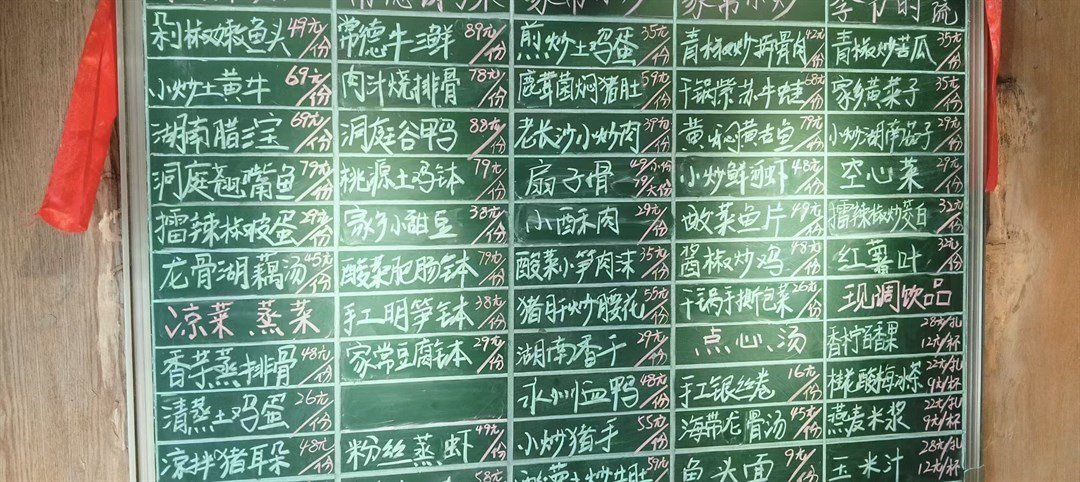 家常小炒
季节时蔬
剁椒嫩鱼头 49元/份
小炒土黄牛 69元/份
湖南腊三宝 69元/份
洞庭翘嘴鱼 79元/份
擂辣椒皮蛋 29元/份
龙骨湖藕汤 45元/份
凉菜 蒸菜
香芋蒸排骨 48元/份
清蒸土鸡蛋 26元/份
凉拌猪耳朵 48元/份
常德牛三鲜 89元/份
肉汁烧排骨 78元/份
洞庭谷鸭 88元/份
桃源土鸡钵 79元/份
家乡小甜豆 38元/份
酸菜肥肠钵 79元/份
手工明笋钵 38元/份
家常豆腐钵 29元/份
粉丝蒸虾 49元/份
58元
煎炒土鸡蛋 35元/份
鹿茸菌焖猪肚 59元/份
老长沙小炒肉 39元/份
扇子骨 49/小份 79/大份
小酥肉 29元/份
酸菜小笋肉沫 35元/份
猪肝炒腰花 55元/份
湖南香干 29元/份
永州血鸭 48元/份
小炒猪手 55元/份
59元
青椒炒拆骨肉 42元/份
干锅紫苏牛蛙 68元/份
黄焖黄古鱼 79元/份
小炒鲜河虾 48元/份
酸菜鱼片 49元/份
酱椒炒鸡 48元/份
干锅手撕包菜 26元/份
点心、汤
手工银丝卷 16元/份
海带龙骨汤 45元/份
鱼头面 9元/份
青椒炒苦瓜 35元/份
家乡黄菜子 35元/份
小炒湖南茄子 29元/份
空心菜 29元/份
擂辣椒炒茭白 32元/份
红薯叶 32元/份
现调饮品
香柠百香果 28元/扎 12元/杯
桂花酸梅冰茶 22元/扎 9元/杯
燕麦米浆 22元/扎 9元/杯
玉米汁 28元/扎 12元/杯